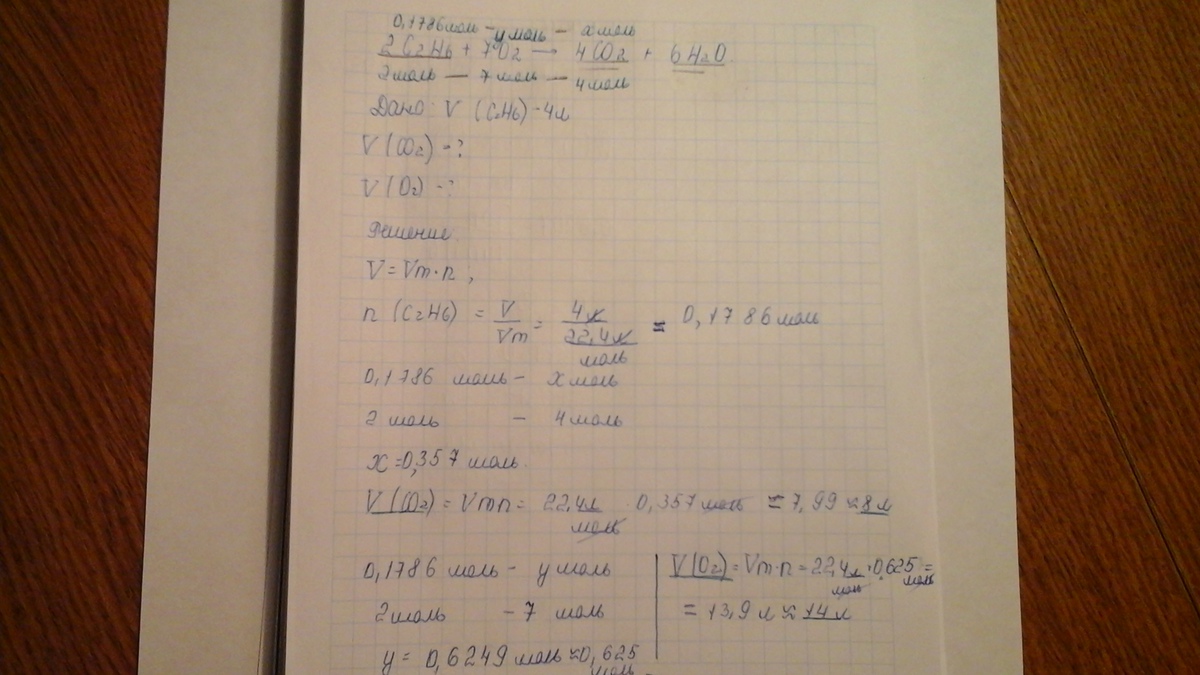 0,1786 моль - y моль - x моль
2C2H6 + 7O2 → 4CO2 + 6H2O
2 моль — 7 моль — 4 моль
Дано: V (C2H6) - 4л
V (CO2) - ?
V (O2) - ?
Решение
V = Vm·n ;
n (C2H6) = V/Vm = 4л/22,4л/моль = 0,1786 моль
0,1786 моль - x моль
2 моль - 4 моль
x = 0,357 моль.
V (CO2) = Vm n = 22,4л/моль · 0,357 моль = 7,99 ≈ 8 л
0,1786 моль - y моль
2 моль - 7 моль
y = 0,6249 моль ≈ 0,625 моль
V(O2) = Vm·n = 22,4л/моль · 0,625 моль =
= 13,9 л ≈ 14 л